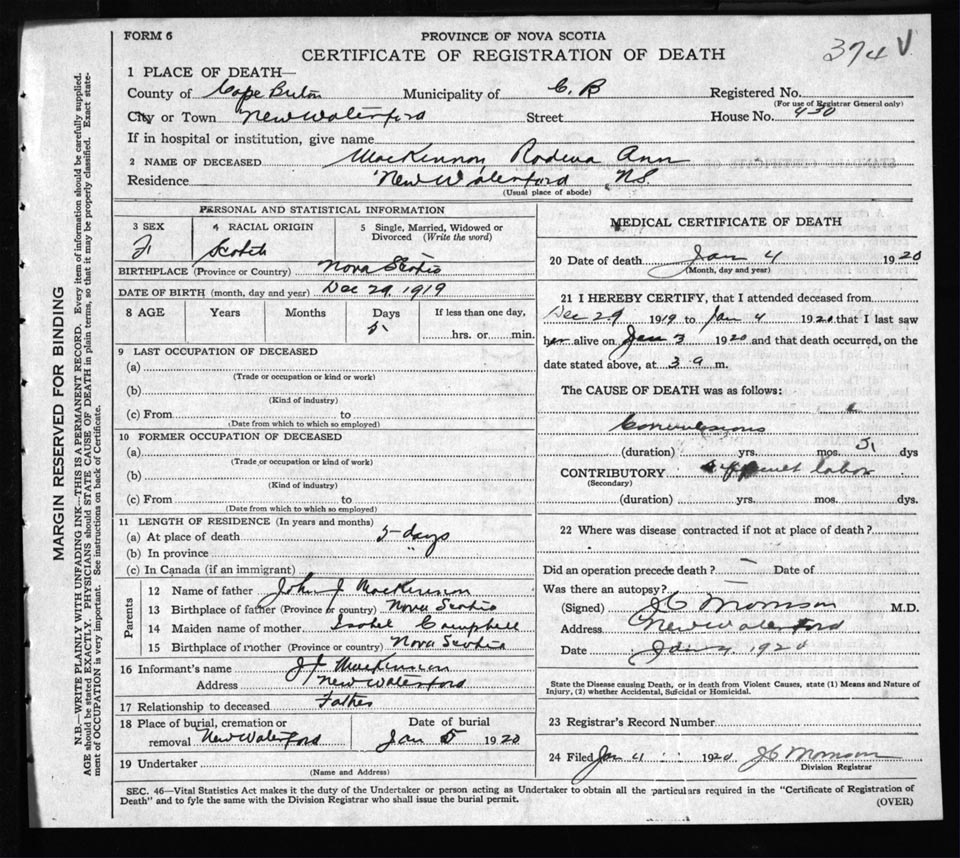 FORM 6
PROVINCE OF NOVA SCOTIA
CERTIFICATE OF REGISTRATION OF DEATH
374 V
1 PLACE OF DEATH—
County of Cape Breton Municipality of C. B Registered No.
(For use of Registrar General only)
City or Town New Waterford Street House No. 430
If in hospital or institution, give name
2 NAME OF DECEASED MacKinnon Rodena Ann
Residence New Waterford N.S.
(Usual place of abode)
PERSONAL AND STATISTICAL INFORMATION
3 SEX 4 RACIAL ORIGIN 5 Single, Married, Widowed or Divorced (Write the word)
F Scotch
BIRTHPLACE (Province or Country) Nova Scotia
DATE OF BIRTH (month, day and year) Dec 29, 1919
8 AGE Years Months Days If less than one day,
5 hrs. or min.
9 LAST OCCUPATION OF DECEASED
(a)
(Trade or occupation or kind or work)
(b)
(Kind of industry)
(c) From to
(Date from which to which so employed)
10 FORMER OCCUPATION OF DECEASED
(a)
(Trade or occupation or kind of work)
(b)
(Kind of industry)
(c) From to
(Date from which to which so employed)
11 LENGTH OF RESIDENCE (In years and months)
(a) At place of death 5 days
(b) In province "
(c) In Canada (if an immigrant)
Parents
12 Name of father John J MacKinnon
13 Birthplace of father (Province or country) Nova Scotia
14 Maiden name of mother Isobel Campbell
15 Birthplace of mother (Province or country) Nova Scotia
16 Informant's name J J MacKinnon
Address New Waterford
17 Relationship to deceased Father
18 Place of burial, cremation or removal New Waterford Date of burial Jan 5 1920
19 Undertaker
(Name and Address)
MEDICAL CERTIFICATE OF DEATH
20 Date of death Jan 4 1920
(Month, day and year)
21 I HEREBY CERTIFY, that I attended deceased from
Dec 29 1919 to Jan 4 1920 that I last saw
her alive on Jan 3 1920 and that death occurred, on the
date stated above, at 3 a. m.
The CAUSE OF DEATH was as follows:
Convulsions
(duration) yrs. mos. 5 dys
CONTRIBUTORY labor
(Secondary)
(duration) yrs. mos. dys.
22 Where was disease contracted if not at place of death?
Did an operation precede death? — Date of
Was there an autopsy? —
(Signed) J C Morrison M.D.
Address New Waterford
Date Jan 4 1920
State the Disease causing Death, or in death from Violent Causes, state (1) Means and Nature of
Injury, (2) whether Accidental, Suicidal or Homicidal.
23 Registrar's Record Number
24 Filed Jan 4 1920 J C Morrison
Division Registrar
SEC. 46—Vital Statistics Act makes it the duty of the Undertaker or person acting as Undertaker to obtain all the particulars required in the "Certificate of Registration of
Death" and to fyle the same with the Division Registrar who shall issue the burial permit.
(OVER)
MARGIN RESERVED FOR BINDING
N.B.—WRITE PLAINLY WITH UNFADING INK—THIS IS A PERMANENT RECORD. Every item of information should be carefully supplied.
AGE should be stated EXACTLY. PHYSICIANS should STATE CAUSE OF DEATH in plain terms, so that it may be properly classified. Exact state-
ment of OCCUPATION is very important. See instructions on back of Certificate.